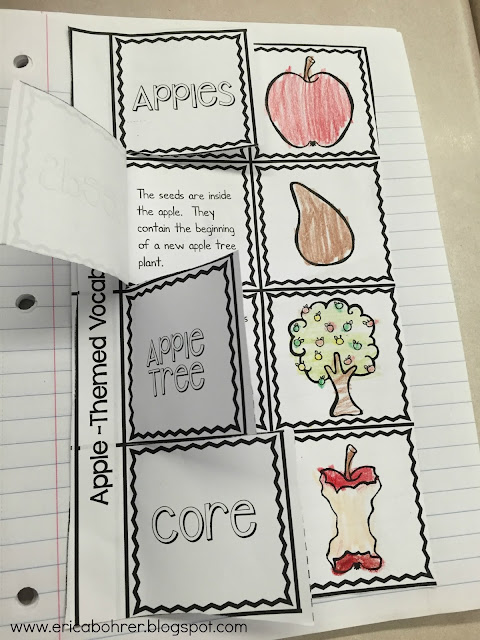 Apples
The seeds are inside
the apple. They
contain the beginning
of a new apple tree
plant.
Apple
Tree
core
Apple-Themed Vocab
www.ericabohrer.blogspot.com